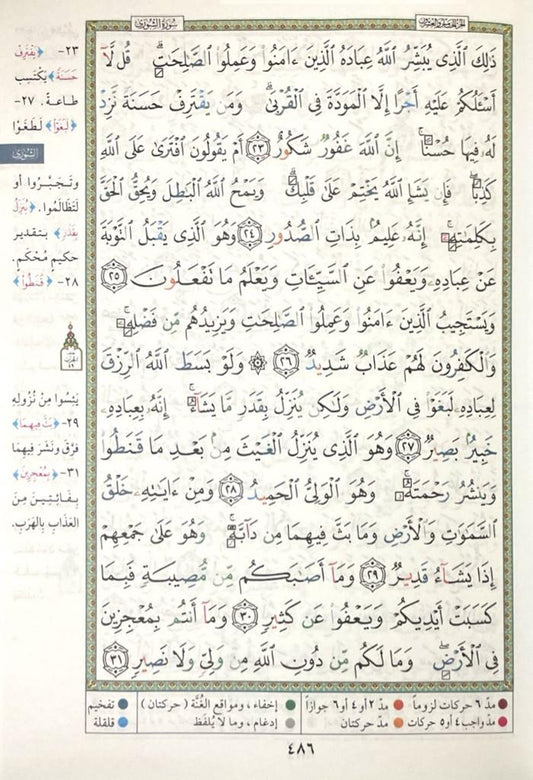 سُورَةُ الشُّورَىٰ
الجزء الخامس والعشرون
ذَٰلِكَ الَّذِي يُبَشِّرُ اللَّهُ عِبَادَهُ الَّذِينَ ءَامَنُوا وَعَمِلُوا الصَّٰلِحَٰتِ ۗ قُل لَّا
أَسْـَٔلُكُمْ عَلَيْهِ أَجْرًا إِلَّا الْمَوَدَّةَ فِي الْقُرْبَىٰ ۗ وَمَن يَقْتَرِفْ حَسَنَةً نَّزِدْ
لَهُ فِيهَا حُسْنًا ۚ إِنَّ اللَّهَ غَفُورٌ شَكُورٌ ٢٣ أَمْ يَقُولُونَ افْتَرَىٰ عَلَى اللَّهِ
كَذِبًا ۖ فَإِن يَشَإِ اللَّهُ يَخْتِمْ عَلَىٰ قَلْبِكَ ۗ وَيَمْحُ اللَّهُ الْبَٰطِلَ وَيُحِقُّ الْحَقَّ
بِكَلِمَٰتِهِ ۚ إِنَّهُ عَلِيمٌ بِذَاتِ الصُّدُورِ ٢٤ وَهُوَ الَّذِي يَقْبَلُ التَّوْبَةَ
عَنْ عِبَادِهِ وَيَعْفُوا عَنِ السَّيِّـَٔاتِ وَيَعْلَمُ مَا تَفْعَلُونَ ٢٥
وَيَسْتَجِيبُ الَّذِينَ ءَامَنُوا وَعَمِلُوا الصَّٰلِحَٰتِ وَيَزِيدُهُم مِّن فَضْلِهِ ۚ
وَالْكَٰفِرُونَ لَهُمْ عَذَابٌ شَدِيدٌ ٢٦ ۞ وَلَوْ بَسَطَ اللَّهُ الرِّزْقَ
لِعِبَادِهِ لَبَغَوْا فِي الْأَرْضِ وَلَٰكِن يُنَزِّلُ بِقَدَرٍ مَّا يَشَاءُ ۚ إِنَّهُ بِعِبَادِهِ
خَبِيرٌ بَصِيرٌ ٢٧ وَهُوَ الَّذِي يُنَزِّلُ الْغَيْثَ مِن بَعْدِ مَا قَنَطُوا
وَيَنشُرُ رَحْمَتَهُ ۚ وَهُوَ الْوَلِيُّ الْحَمِيدُ ٢٨ وَمِنْ ءَايَٰتِهِ خَلْقُ
السَّمَٰوَٰتِ وَالْأَرْضِ وَمَا بَثَّ فِيهِمَا مِن دَابَّةٍ ۚ وَهُوَ عَلَىٰ جَمْعِهِمْ
إِذَا يَشَاءُ قَدِيرٌ ٢٩ وَمَا أَصَٰبَكُم مِّن مُّصِيبَةٍ فَبِمَا
كَسَبَتْ أَيْدِيكُمْ وَيَعْفُوا عَن كَثِيرٍ ٣٠ وَمَا أَنتُم بِمُعْجِزِينَ
فِي الْأَرْضِ ۖ وَمَا لَكُم مِّن دُونِ اللَّهِ مِن وَلِيٍّ وَلَا نَصِيرٍ ٣١
٢٣- ﴿يَقْتَرِفْ
حَسَنَةً﴾ يَكْتَسِب
طاعة. ٢٧-
﴿لَبَغَوْا﴾ لَطَغَوْا
الشورى
وتَجَبَّرُوا أو
لَتَظَالَمُوا. ﴿يُنَزِّلُ
بِقَدَرٍ﴾ بتقدير
حكيمٍ مُحْكَمٍ.
٢٨- ﴿قَنَطُوا﴾
يَئِسُوا مِنْ نُزُولِهِ
٢٩- ﴿بَثَّ فِيهِمَا﴾
فَرَّقَ ونَشَرَ فِيهِمَا
٣١- ﴿بِمُعْجِزِينَ﴾
بِفَائِتِينَ مِنَ
العَذَابِ بالهَرَبِ.
مدّ ٦ حركات لزوماً
مدّ ٢ أو ٤ أو ٦ جوازاً
إخفاء، ومواقع الغُنَّة (حركتان)
تفخيم
مدّ واجب ٤ أو ٥ حركات
مدّ حركتان
إدغام، وما لا يُلفَظ
قلقلة
٤٨٦